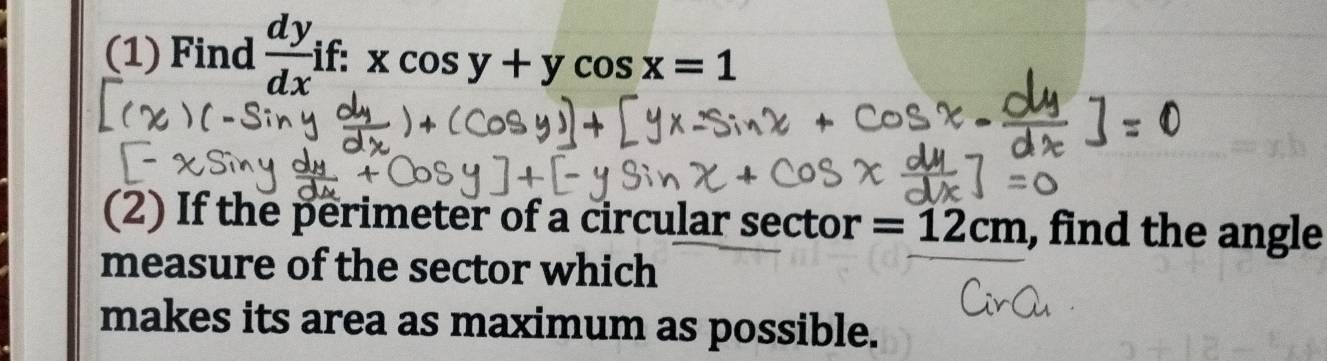 (1) Find dy/dx if: x cos y + y cos x = 1
[(x)(-Sin y dy/dx) + (Cos y)] + [y x -Sin x + Cos x . dy/dx] = 0
[-x Sin y dy/dx + Cos y] + [-y Sin x + Cos x dy/dx] = 0
(2) If the perimeter of a circular sector = 12cm, find the angle
measure of the sector which
makes its area as maximum as possible.